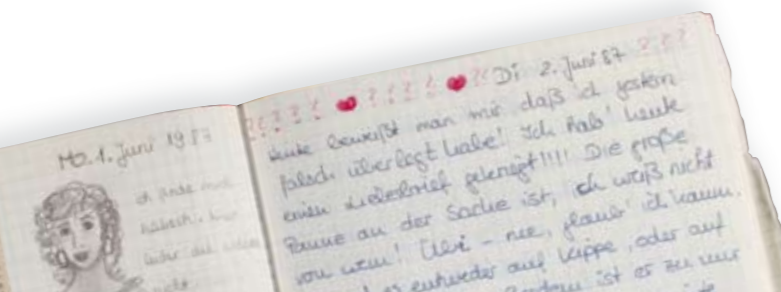 Mo. 1. Juni 1987
ich finde mich
hübsch! Nur
leider die
nicht
??? ♥ ???? ♥ ?? Di 2. Juni 87 ???
Heute beweißt man mir daß ich gestern
falsch überlegt habe! Ich hab' heute
einen Liebesbrief gekriegt!!!! Die große
Panne an der Sache ist, ich weiß nicht
von wem! Uwe - nee, glaub' ich kaum.
es entweder auf Kippe, oder auf
ist er zu mir